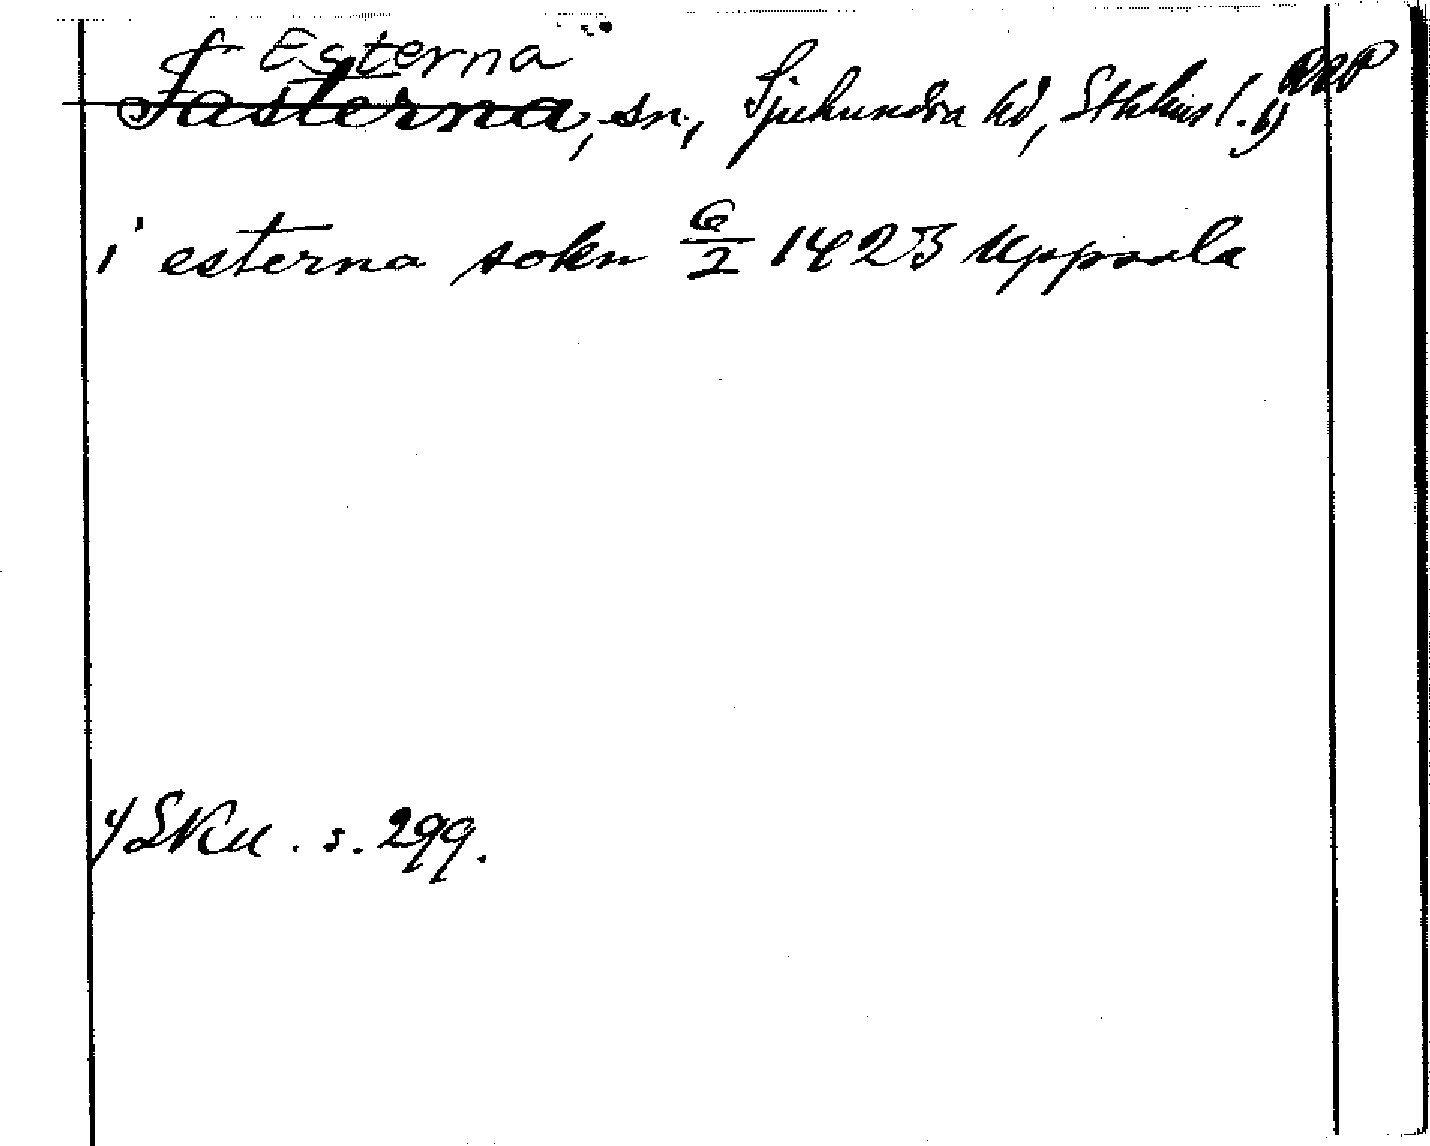 f Esterna
Fasterna, sn, Sjuhundra hd, Sthlms l.
i esterna sokn 6/2 1423 Uppsala
SKU. s. 299.